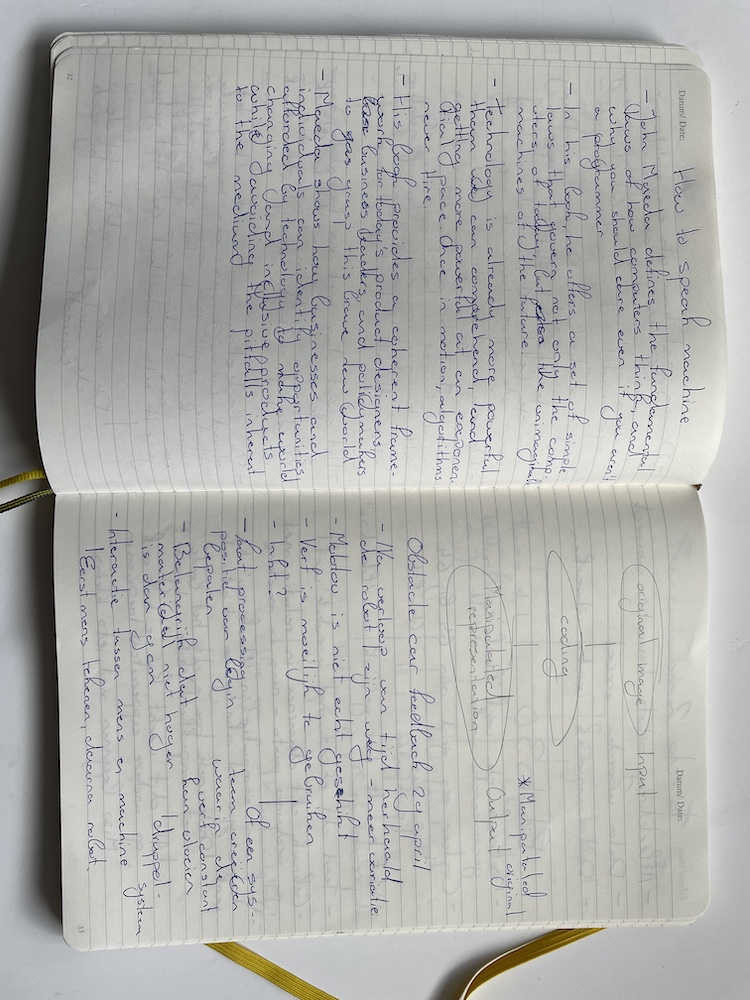 Datum/ Date: How to speak machine
- John Maeda defines the fundamental
laws of how computers think, and
why you should care even if you aren't
a programmer
- In his book, he offers a set of simple
laws that govern not only the comp-
uters of today, but also the unimaginable
machines of the future.
- Technology is already more powerful
than we can comprehend, and
getting more powerful at an exponen-
tial pace. Once in motion, algorithms
never tire.
- His book provides a coherent frame-
work for today's product designers,
business leaders, and policymakers
to grasp this brave new world
- Maeda shows how businesses and
individuals can identify opportunities
afforded by technology to make world
changing and inclusive products
while avoiding the pitfalls inherent
to the medium
32
Datum/ Date:
original image Input
coding
Manipulated
representation
* Manipulated
original
Output
Obstacle car feedback 29 april
- Na verloop van tijd herhaald
de robot zijn weg - meer variatie
- is niet echt geschikt
- Verf is moeilijk te gebruiken
- Inkt?
Of een sys-
teem creëren
waarin de
verf constant
kan vloeien
druppel-
systeem
- Laat processing
positie van begin
bepalen
- Belangrijk dat
materiaal niet hoger
is dan 9cm
- Interactie tussen mens en machine
Eerst mens tekenen, daarna robot.
33